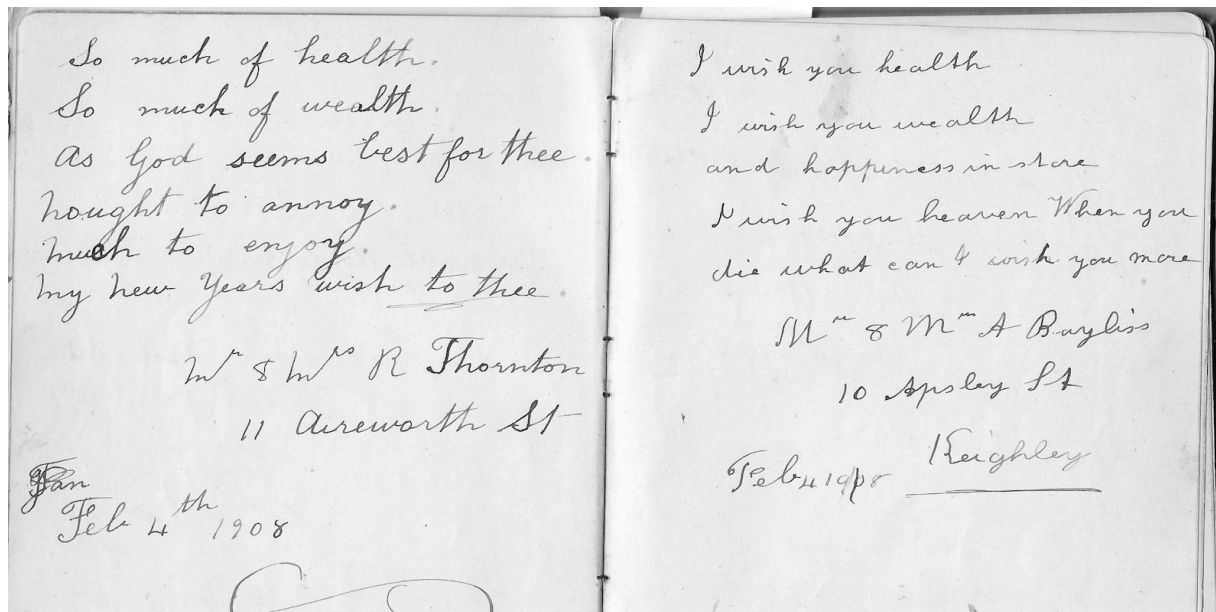 So much of health.
So much of wealth.
As God seems best for thee.
Nought to annoy.
Much to enjoy.
My New Years wish to thee.
Mr & Mrs R Thornton
11 Aireworth St
Jan
Feb 4th 1908
I wish you health
I wish you wealth
and happiness in store
I wish you heaven When you
die what can I wish you more
Mr & Mrs A Bayliss
10 Apsley St
Keighley
Feb 4 1908